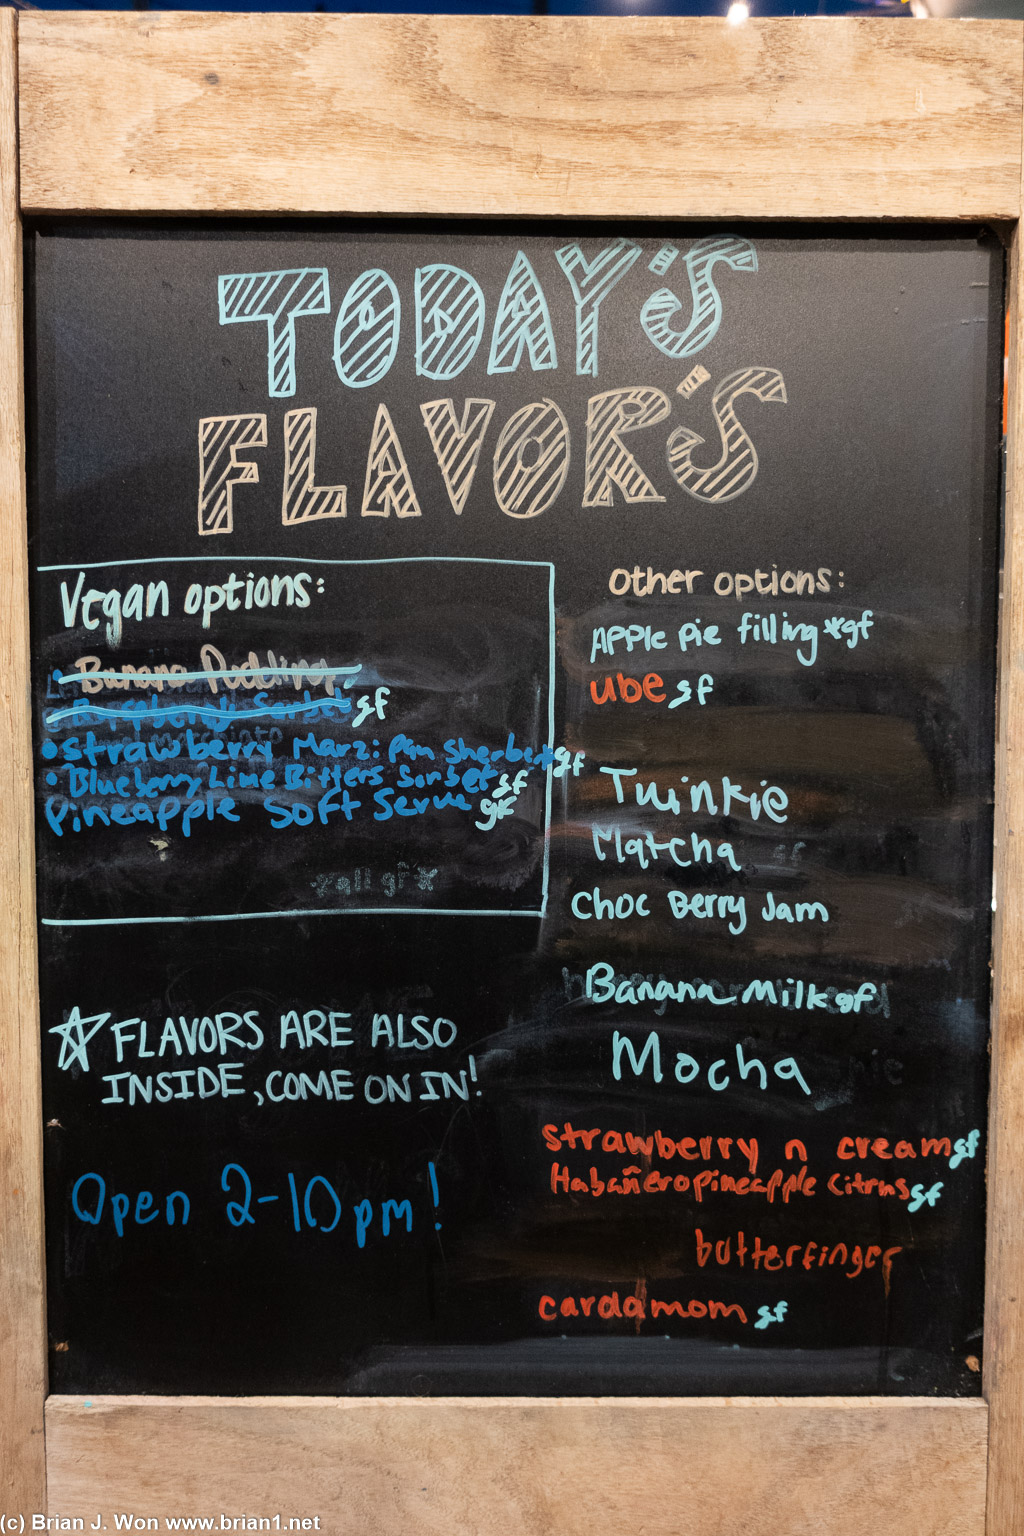 TODAY'S
FLAVOR'S
Vegan options:
Banana Pudding
Sorbet gf
Strawberry Marzipan Sherbert gf
Blueberry Lime Bitters Sorbet gf
Pineapple Soft Serve gf
*all gf*
FLAVORS ARE ALSO
INSIDE, COME ON IN!
Open 2-10pm!
Other options:
Apple pie filling *gf
ube gf
Twinkie
Matcha
Choc Berry Jam
Banana Milk gf
Mocha
strawberry n cream gf
Habañero pineapple citrus gf
butterfinger
cardamom gf
(c) Brian J. Won www.brian1.net